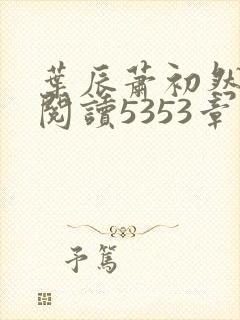 葉辰蕭初然
閱讀5353章
予篤